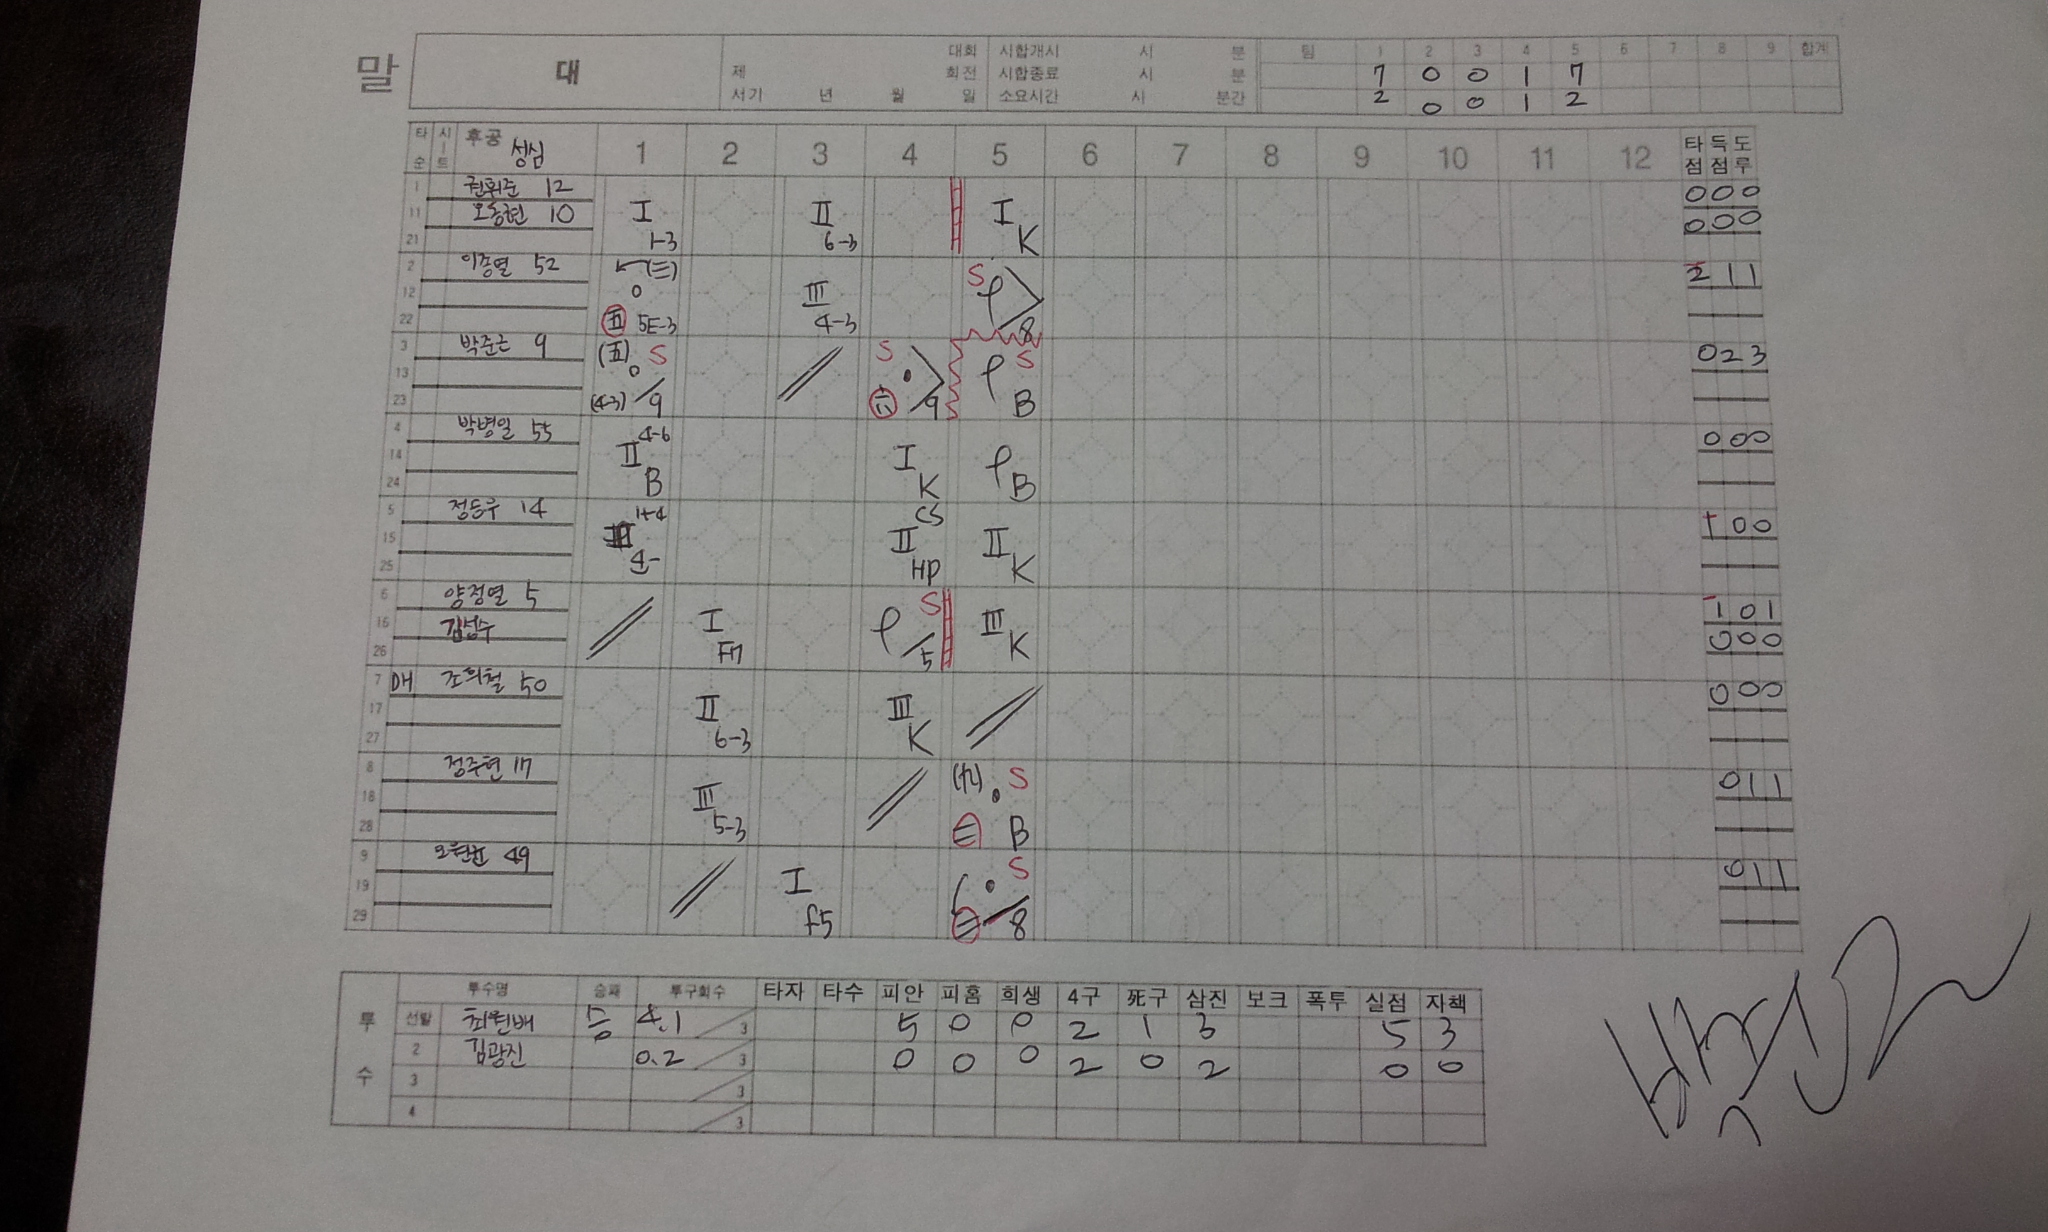 말 대
제 대회 회전
서기 년 월 일
시합개시 시 분
시합종료 시 분
소요시간 시 분간
팀 1 2 3 4 5 6 7 8 9 합계
7 0 0 1 7
2 0 0 1 2
타순 시트 후공 성심 1 2 3 4 5 6 7 8 9 10 11 12 타점 득점 도루
1 권휘준 12 0 0 0
11 오동현 10 I II I 0 0 0
21 1-3 6-3 K
2 이종열 52 (三) S 2 1 1
12 0 III
22 五 5E-3 4-3 8
3 박준근 9 (五) S S S 0 2 3
13
23 (4-3) 9 六 9 B
4 박병일 55 4-6 0 0 0
14 II I
24 B K B
5 정승우 14 1+4 CS 1 0 0
15 III II II
25 4- HP K
6 양정열 5 S 1 0 1
16 김성수 I III 0 0 0
26 F7 5 K
7 DH 조의철 50 0 0 0
17 II III
27 6-3 K
8 정주현 17 (九) S 0 1 1
18 III
28 5-3 三 B
9 49 S 0 1 1
19 I
29 f5 三 8
투수 투수명 승패 투구회수 타자 타수 피안 피홈 희생 4구 死구 삼진 보크 폭투 실점 자책
선발 최원배 승 4.1 3 5 0 0 2 1 3 5 3
2 김광진 0.2 3 0 0 0 2 0 2 0 0
3 3
4 3